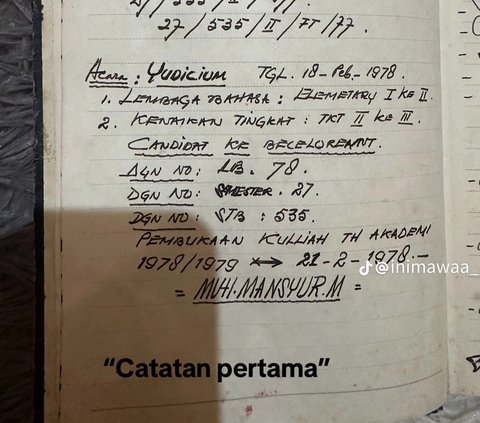 27 / 535 / II / FT / 77.
Acara : YUDICIUM TGL. 18-Feb-1978.
1. LEMBAGA BAHASA : ELEMETARY I KE II.
2. KENAIKAN TINGKAT : TKT II KE III.
CANDIDAT KE BECELOREANT.
DGN NO : LB. 78.
DGN NO : SMESTER . 27.
DGN NO : STB : 535.
PEMBUKAAN KULLIAH TH AKADEMI
1978/1979 ↔ 21-2-1978.-
= MUH. MANSYUR. M =
@inimawaa_
“Catatan pertama”